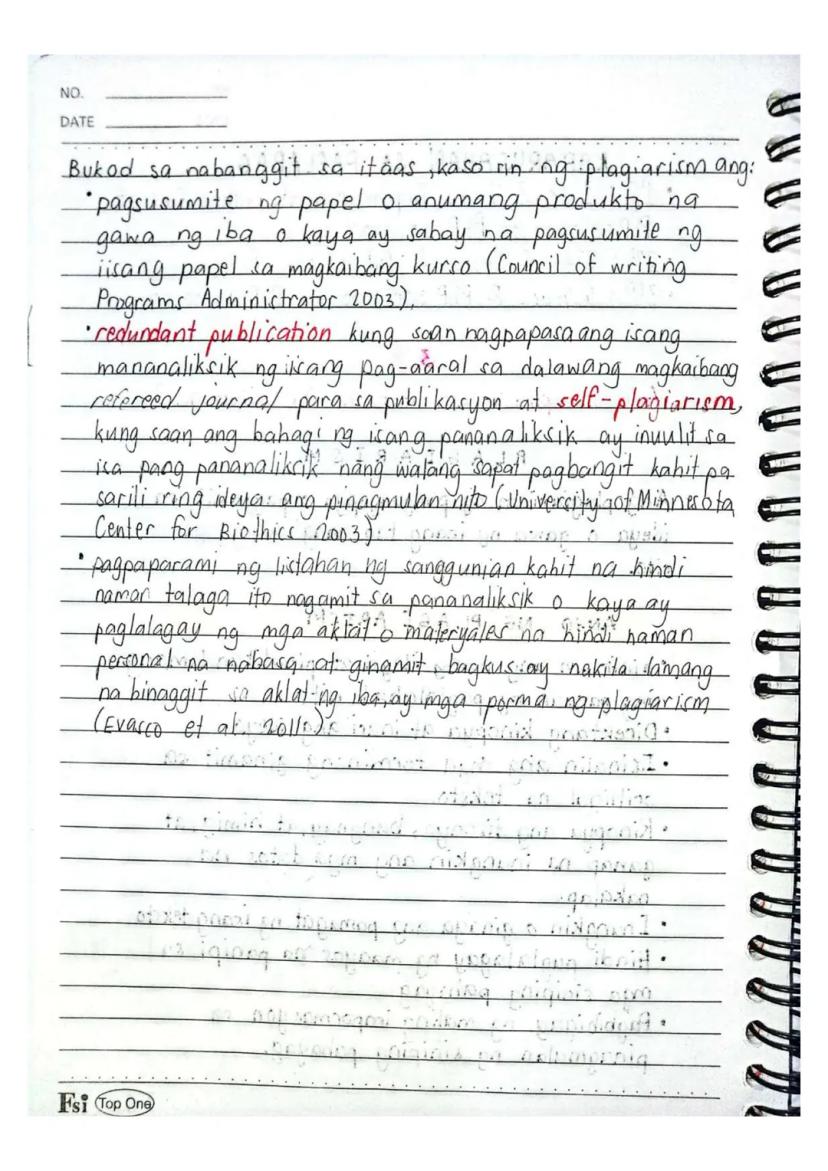 NO.
DATE
Bukod sa nabanggit sa itaas, kaso rin ng plagiarism ang:
• pagsusumite ng papel o anumang produkto na
gawa ng iba o kaya ay sabay na pagsusumite ng
iisang papel sa magkaibang kurso (Council of writing
Programs Administrator 2003).
• redundant publication kung saan nagpapasa ang isang
mananaliksik ng iisang pag-aaral sa dalawang magkaibang
refereed journal para sa publikasyon at self-plagiarism,
kung saan ang bahagi ng isang pananaliksik ay inuulit sa
isa pang pananaliksik nang walang sapat pagbangit kahit pa
sarili ring ideya ang pinagmulan nito (University of Minnesota
Center for Biothics 2003).
• pagpaparami ng listahan ng sanggunian kahit na hindi
naman talaga ito nagamit sa pananaliksik o kaya ay
paglalagay ng mga aklat o materyales na hindi naman
personal na nabasa at ginamit bagkus ay nakita lamang
na binaggit sa aklat ng iba, ay mga porma ng plagiarism
(Evasco et al. 2011).
Fsi Top One